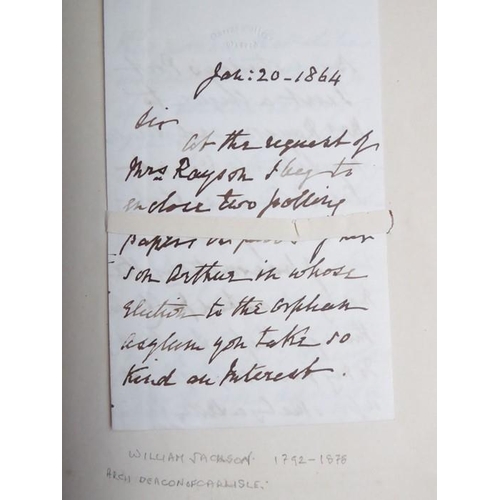 Jan: 20 - 1864
Sir
At the request of
Mrs Rayson I beg to
enclose two polling
papers in favor of her
son Arthur in whose
election to the Orphan
asylum you take so
kind an Interest.
WILLIAM JACKSON. 1792-1878
ARCH DEACON OF CARLISLE.